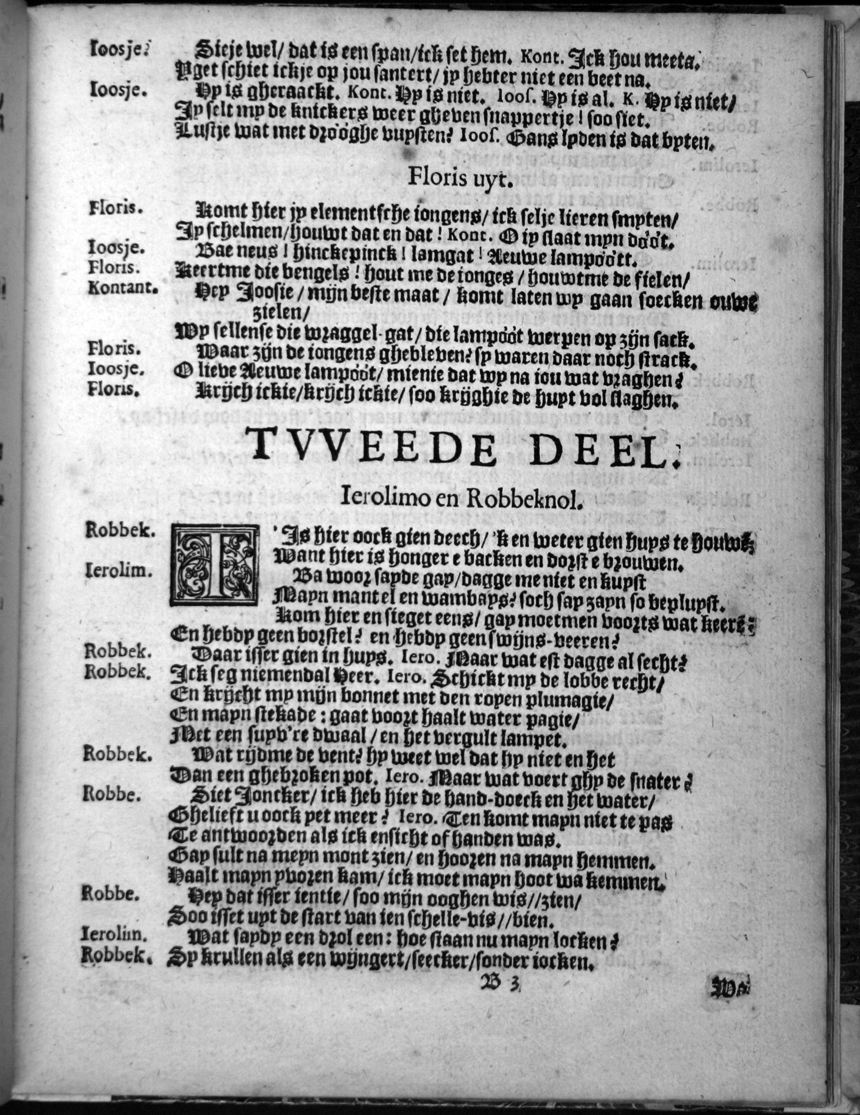 Ioosje. Sieje wel/ dat is een span/ick set hem. Kont. Ick hou meeta.
Pget schiet ickje op jou santert/ jy hebter niet een beet na.
Ioosje. Hy is gheraackt. Kont. Hy is niet. Ioos. Hy is al. K. Hy is niet/
Jy selt my de knickers weer gheven snappertje! soo siet.
Lustje wat met drooghe vuysten? Ioos. Gans lyden is dat byten.
Floris uyt.
Floris. Komt hier jy elementsche iongens/ ick selje lieren smyten/
Jy schelmen/houwt dat en dat! Kont. O jy slaat myn dóót.
Ioosje. Bae neus! hinckepinck! lamgat! Aeuwe lampóót.
Floris. Keertme die bengels! hout me de ionges/ houwtme de fielen/
Kontant. Hey Joosie/ mijn beste maat/ komt laten wy gaan soecken ouwe
zielen/
Wy sellense die wraggel-gat/ die lampóót werpen op zijn sack.
Floris. Waar zijn de iongens ghebleven? sy waren daar noch strack.
Ioosje. O lieve Aeuwe lampóót/ mienie dat wy na iou wat vraghen?
Floris. Krijch ickie/krijch ickie/ soo krijghie de huyt vol slaghen.
TVVEEDE DEEL.
Ierolimo en Robbeknol.
Robbek. 'TIs hier oock gien deech/ 'k en weter gien huys te houwen
Want hier is honger e backen en dorst e brouwen.
Ierolim. Ba woor sayde gay/dagge me niet en kuyst
Mayn mantel en wambays? soch say zayn so bepluyst.
Kom hier en sieget eens/ gay moetmen voorts wat keeren:
En hebdy geen borstel? en hebdy geen swijns-veeren?
Robbek. Daar isser gien in huys. Iero. Maar wat est dagge al secht?
Robbek. Ick seg niemendal Heer. Iero. Schickt my de lobbe recht/
En krijcht my mijn bonnet met den royen plumagie/
En mayn stekade: gaat voort haalt water pagie/
Met een suyv're dwaal/ en het vergult lampet.
Robbek. Wat rijdme de vent? hy weet wel dat hy niet en het
Dan een ghebroken pot. Iero. Maar wat voert ghy de snater?
Robbe. Siet Joncker/ ick heb hier de hand-doeck en het water/
Ghelieft u oock yet meer? Iero. Ten komt mayn niet te pas
Te antwoorden als ick ensicht of handen was.
Gay sult na meyn mont zien/ en hooren na mayn hemmen.
Haalt mayn yvoren kam/ ick moet mayn hoot wa kemmen.
Robbe. Hey dat isser ientie/ soo mijn ooghen wis//zien/
Soo isset uyt de start van ien schelle-vis//bien.
Ierolim. Wat saydy een drol een: hoe staan nu mayn locken?
Robbek. Sy krullen als een wijngert/seecker/sonder iocken.
B 3 Wa